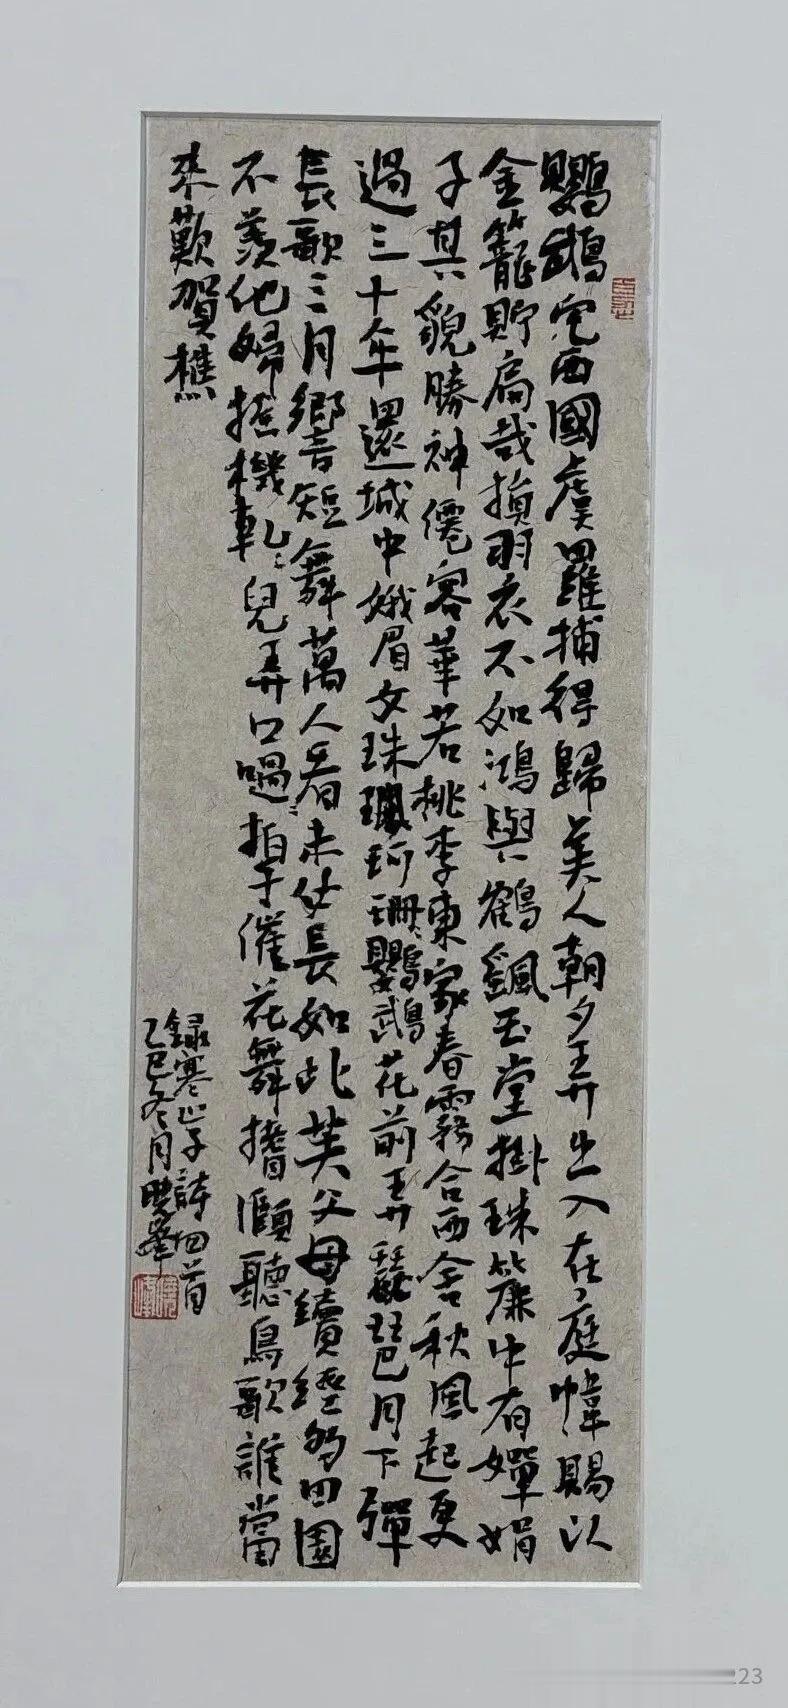 鸚鵡宅西國虞羅捕得歸美人朝夕弄出入在庭幃賜以
金籠貯扃哉損羽衣不如鴻與鶴颻玉堂掛珠簾中有嬋娟
子其貌勝神僊容華若桃李東家春霧合西舍秋風起更
過三十年還城中娥眉女珠珮珂珊鸚鵡花前弄琵琶月下彈
長歌三月響短舞萬人看未必長如此芙父母續經多田園
不羨他婦搖機軋〻兒弄口喎〻拍手催花舞搘頤聽鳥歌誰當
來歎賀樵
錄寒山子詩四首
乙巳冬月曉峰
23